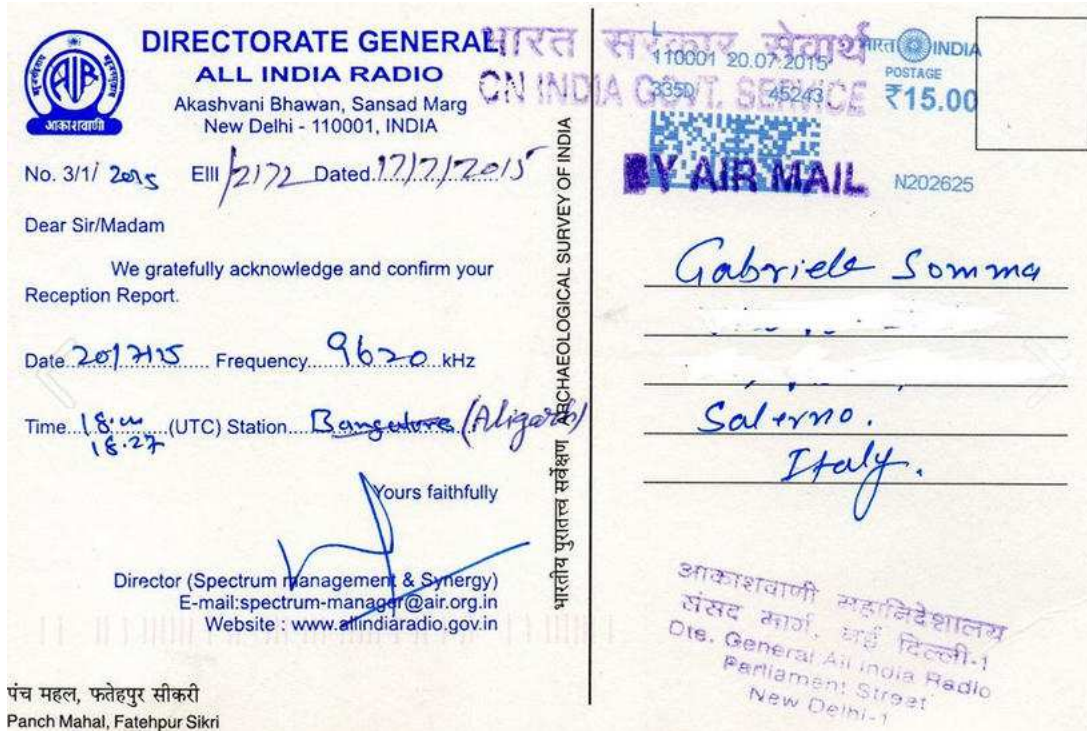 DIRECTORATE GENERAL
ALL INDIA RADIO
Akashvani Bhawan, Sansad Marg
New Delhi - 110001, INDIA
AIR
आकाशवाणी
No. 3/1/ 2015 EIII /2172 Dated 17/7/2015
Dear Sir/Madam
We gratefully acknowledge and confirm your
Reception Report.
Date 20/7/15 Frequency 9620 kHz
Time 18.00 (UTC) Station Bangalore (Aligarh)
18.27
Yours faithfully
Director (Spectrum management & Synergy)
E-mail:spectrum-manager@air.org.in
Website : www.allindiaradio.gov.in
पंच महल, फतेहपुर सीकरी
Panch Mahal, Fatehpur Sikri
भारतीय पुरातत्त्व सर्वेक्षण ARCHAEOLOGICAL SURVEY OF INDIA
भारत सरकार सेवार्थ
ON INDIA GOVT. SERVICE
L
110001 20.07.2015
335D 45243
भारत INDIA
POSTAGE
₹15.00
BY AIR MAIL
N202625
Gabriele Somma
Salerno.
Italy.
आकाशवाणी महानिदेशालय
संसद मार्ग, नई दिल्ली-1
Dte. General All India Radio
Parliament Street
New Delhi-1